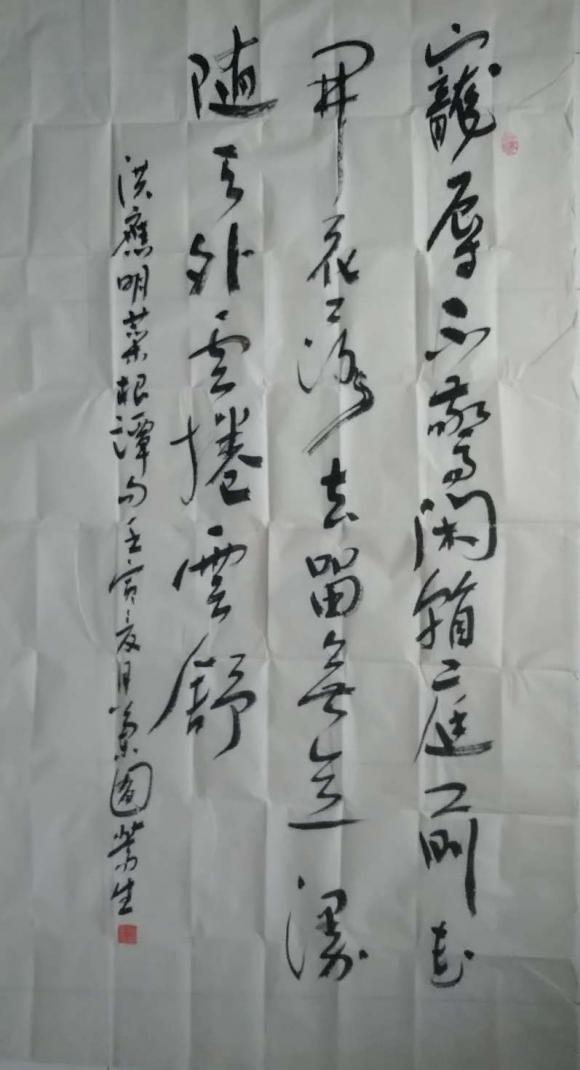 寵辱不驚閑看庭前花
開花落去留無意漫
随天外雲捲雲舒
洪應明菜根譚句壬寅夏月園生